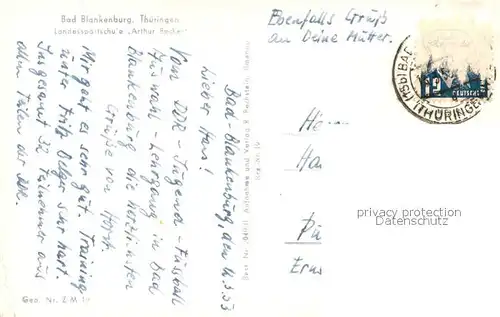 Bad Blankenburg, Thüringen
Landessportschule „Arthur Becker"
Ebenfalls Grüße
an Deine Mutter.
Bad-Blankenburg, den 16.3.55
Lieber Hans!
Vom DDR-Jugend-Fussball
Auswahl-Lehrgang in Bad
Blankenburg die herzlichsten
Grüße von Horst.
Mir geht es sehr gut. Training
unter Fritz Belger sehr hart.
Insgesamt 32 Teilnehmer aus
allen Teilen der DDR.
Aufnahme und Verlag R. Bechstein, Ilmenau
Best. Nr.
(15b) BAD
THÜRINGEN
DEUTSCHE
He
Ha
property protection
© Copyright
Pü
Erns
Gen. Nr. Z M 19